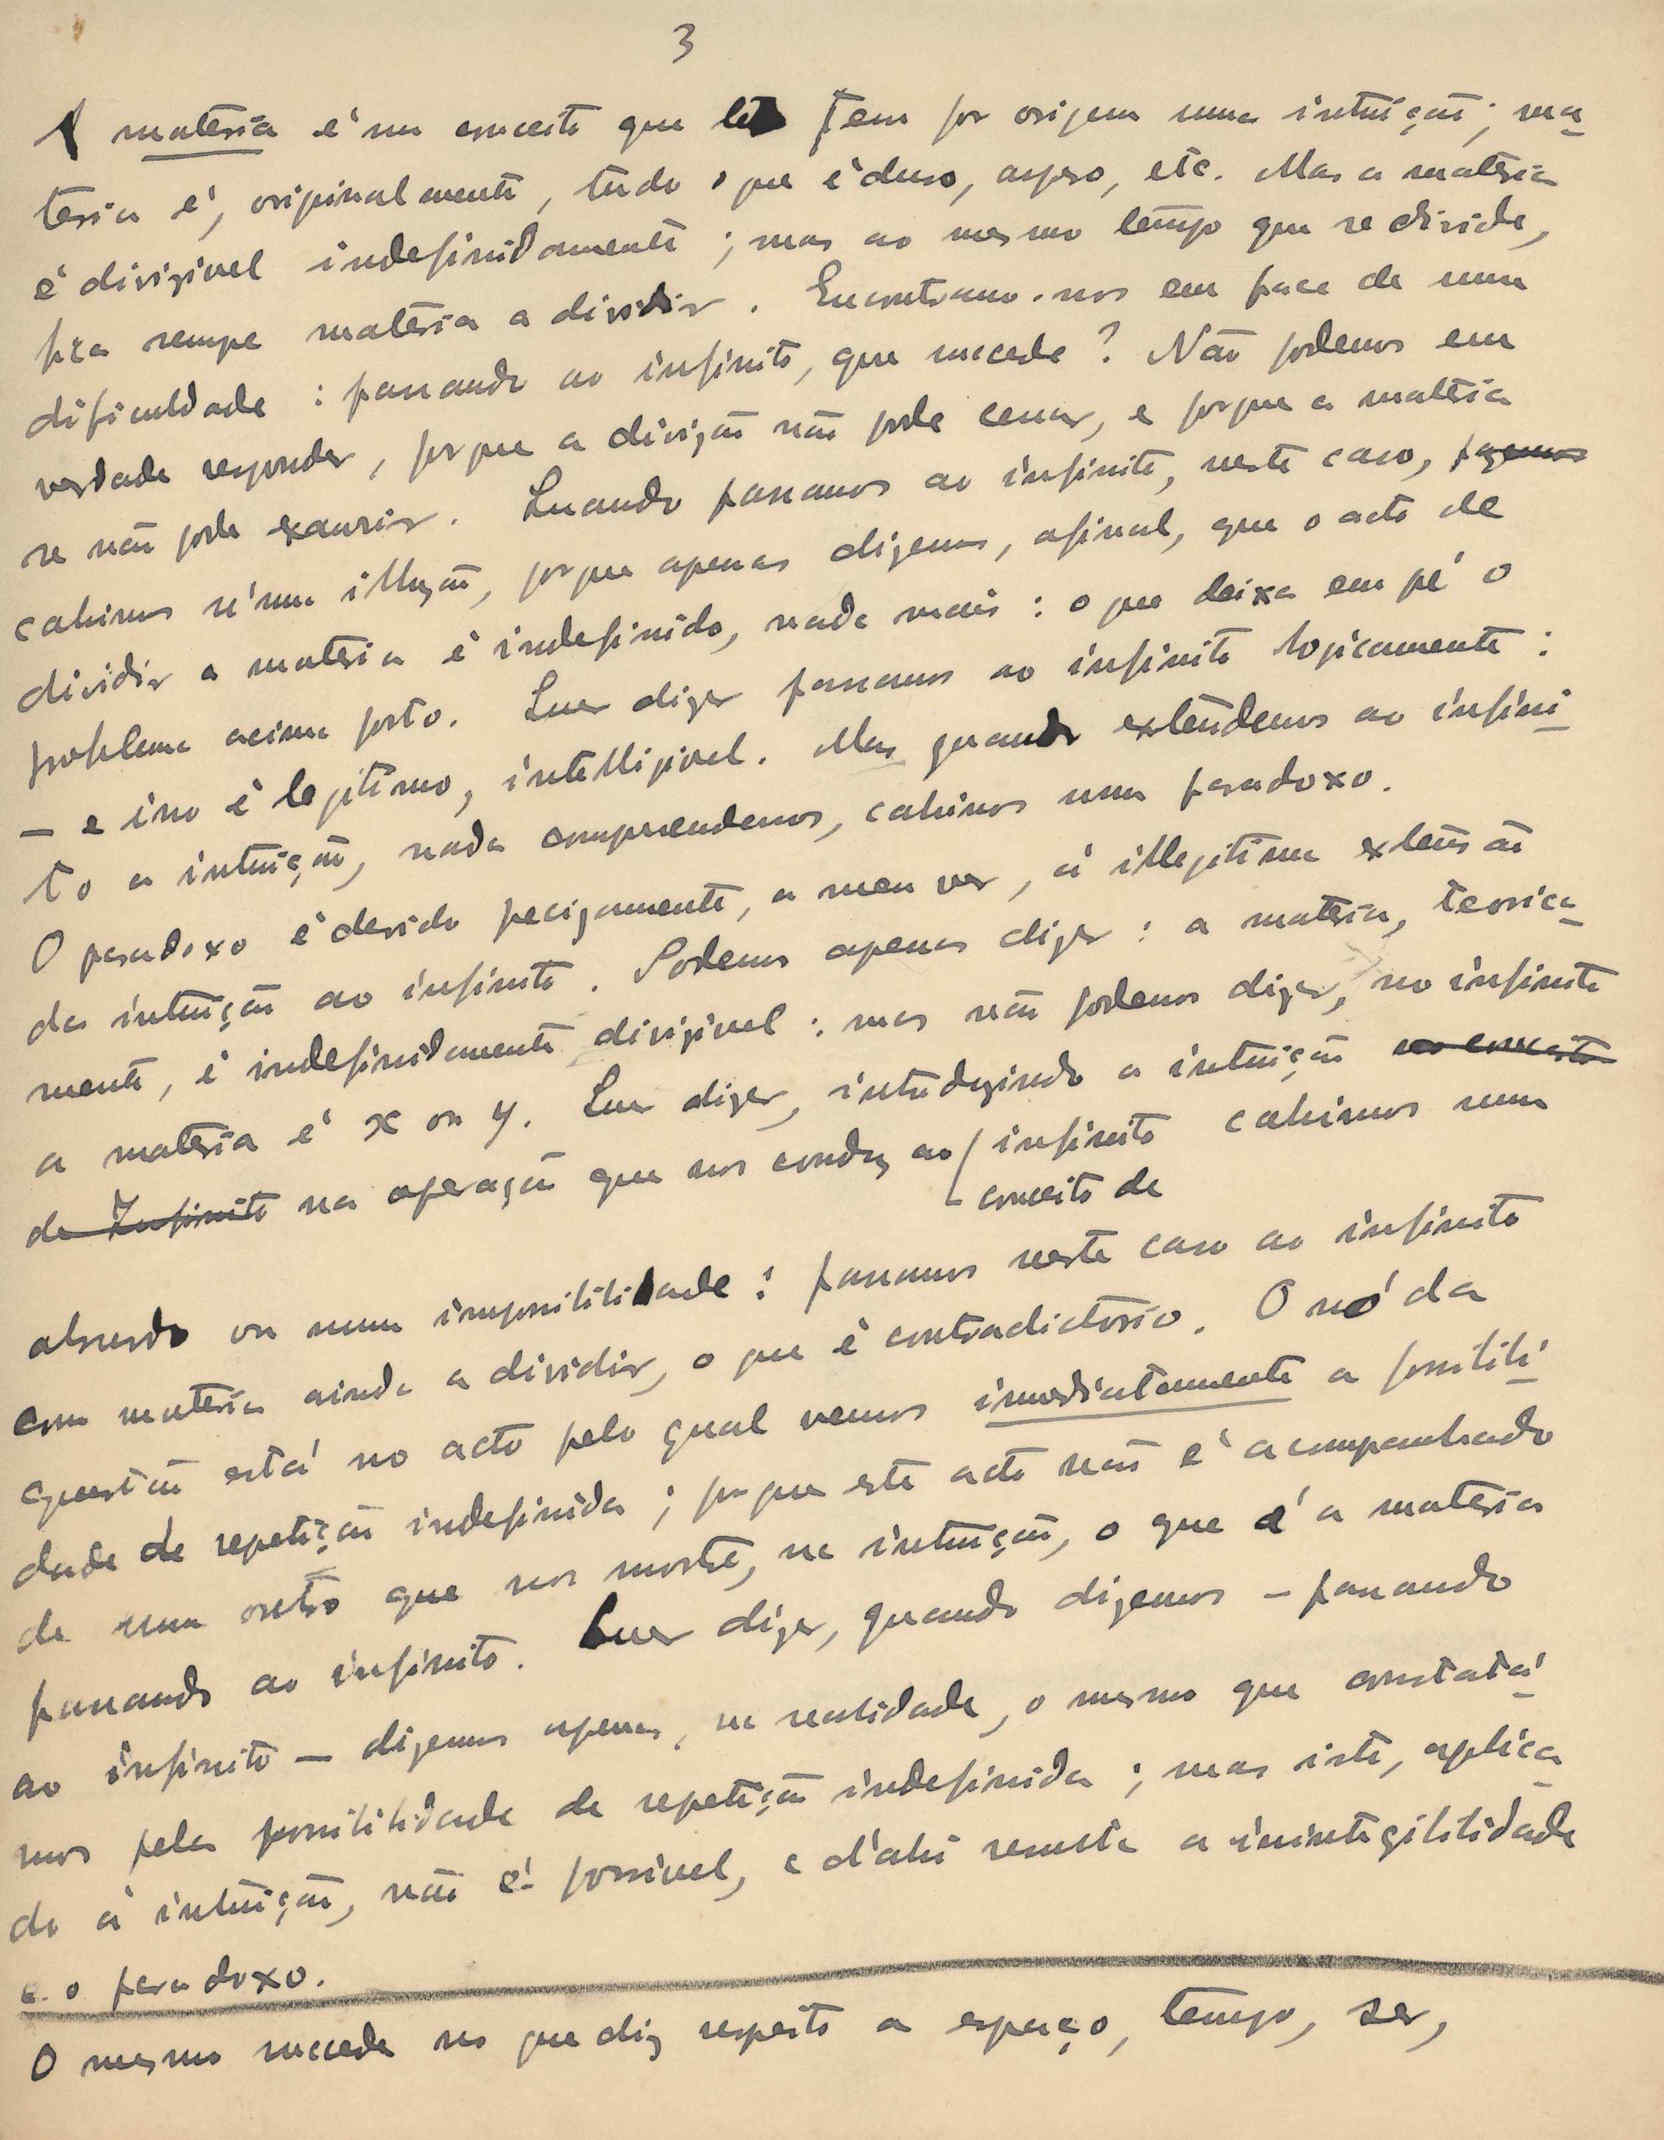 3
A materia é um conceito que tem por origem uma intuição; ma-
teria é, originalmente, tudo o que é duro, aspero, etc. Mas a materia
é divizivel indefinidamente; mas ao mesmo tempo que se divide,
fica sempre materia a dividir. Encontramo-nos em face de uma
dificuldade: passando ao infinito, que succede? Não podemos em
verdade responder, porque a divizão não pode cessar, e porque a materia
se não pode exaurir. Quando passamos ao infinito, neste caso, fazemos
cahimos n'uma illuzão, porque apenas dizemos, afinal, que o acto de
dividir a materia é indefinido, nada mais: o que deixa em pé o
problema acima posto. Quer dizer passamos ao infinito logicamente:
— e isso é legitimo, intelligivel. Mas quando extendemos ao infini-
to a intuição, nada comprendemos, cahimos num paradoxo.
O paradoxo é devido precizamente, a meu ver, á illegitima extensão
da intuição ao infinito. Podemos apenas dizer: a materia, teorica-
mente, é indefinidamente divizivel: mas não podemos dizer, no infinito
a materia é x ou y. Quer dizer, introduzindo a intuição no conceito
de Infinito na operação que nos conduz ao infinito cahimos num
conceito de
absurdo ou numa impossibilidade: passamos neste caso ao infinito
com materia ainda a dividir, o que é contradictorio. O nó da
questão está no acto pelo qual vemos imediatamente a possibili-
dade de repetição indefinida; porque este acto não é acompanhado
de um outro que nos mostre, na intuição, o que é a materia
passando ao infinito. Quer dizer, quando dizemos – passando
ao infinito — dizemos apenas, na realidade, o mesmo que constatá-
mos pela possibilidade de repetição indefinida; mas isto, aplica-
do á intuição, não é possivel, e d'ahi resulta a inintegibilidade
e o paradoxo.
O mesmo succede no que diz respeito a espaço, tempo, ser,